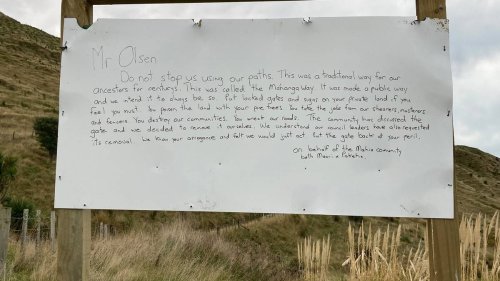 Mr Olsen
Do not stop us using our paths. This was a traditional way for our
ancestors for centurys. This was called the Mahanga Way. It was made a public way
and we intend it to always be so. Put locked gates and signs on your private land if you
feel you must. You poison the land with your pine trees. You take the jobs from our shearers, musterers
and fencers. You destroy our communities. You wreck our roads. The community has discussed the
gate and we decided to remove it ourselves. We understand our council leaders have also requested
its removal. We know your arrogance and felt we would just act. Put the gate back at your peril.
On behalf of the Mahia comunity
both Maori & Pakeha.